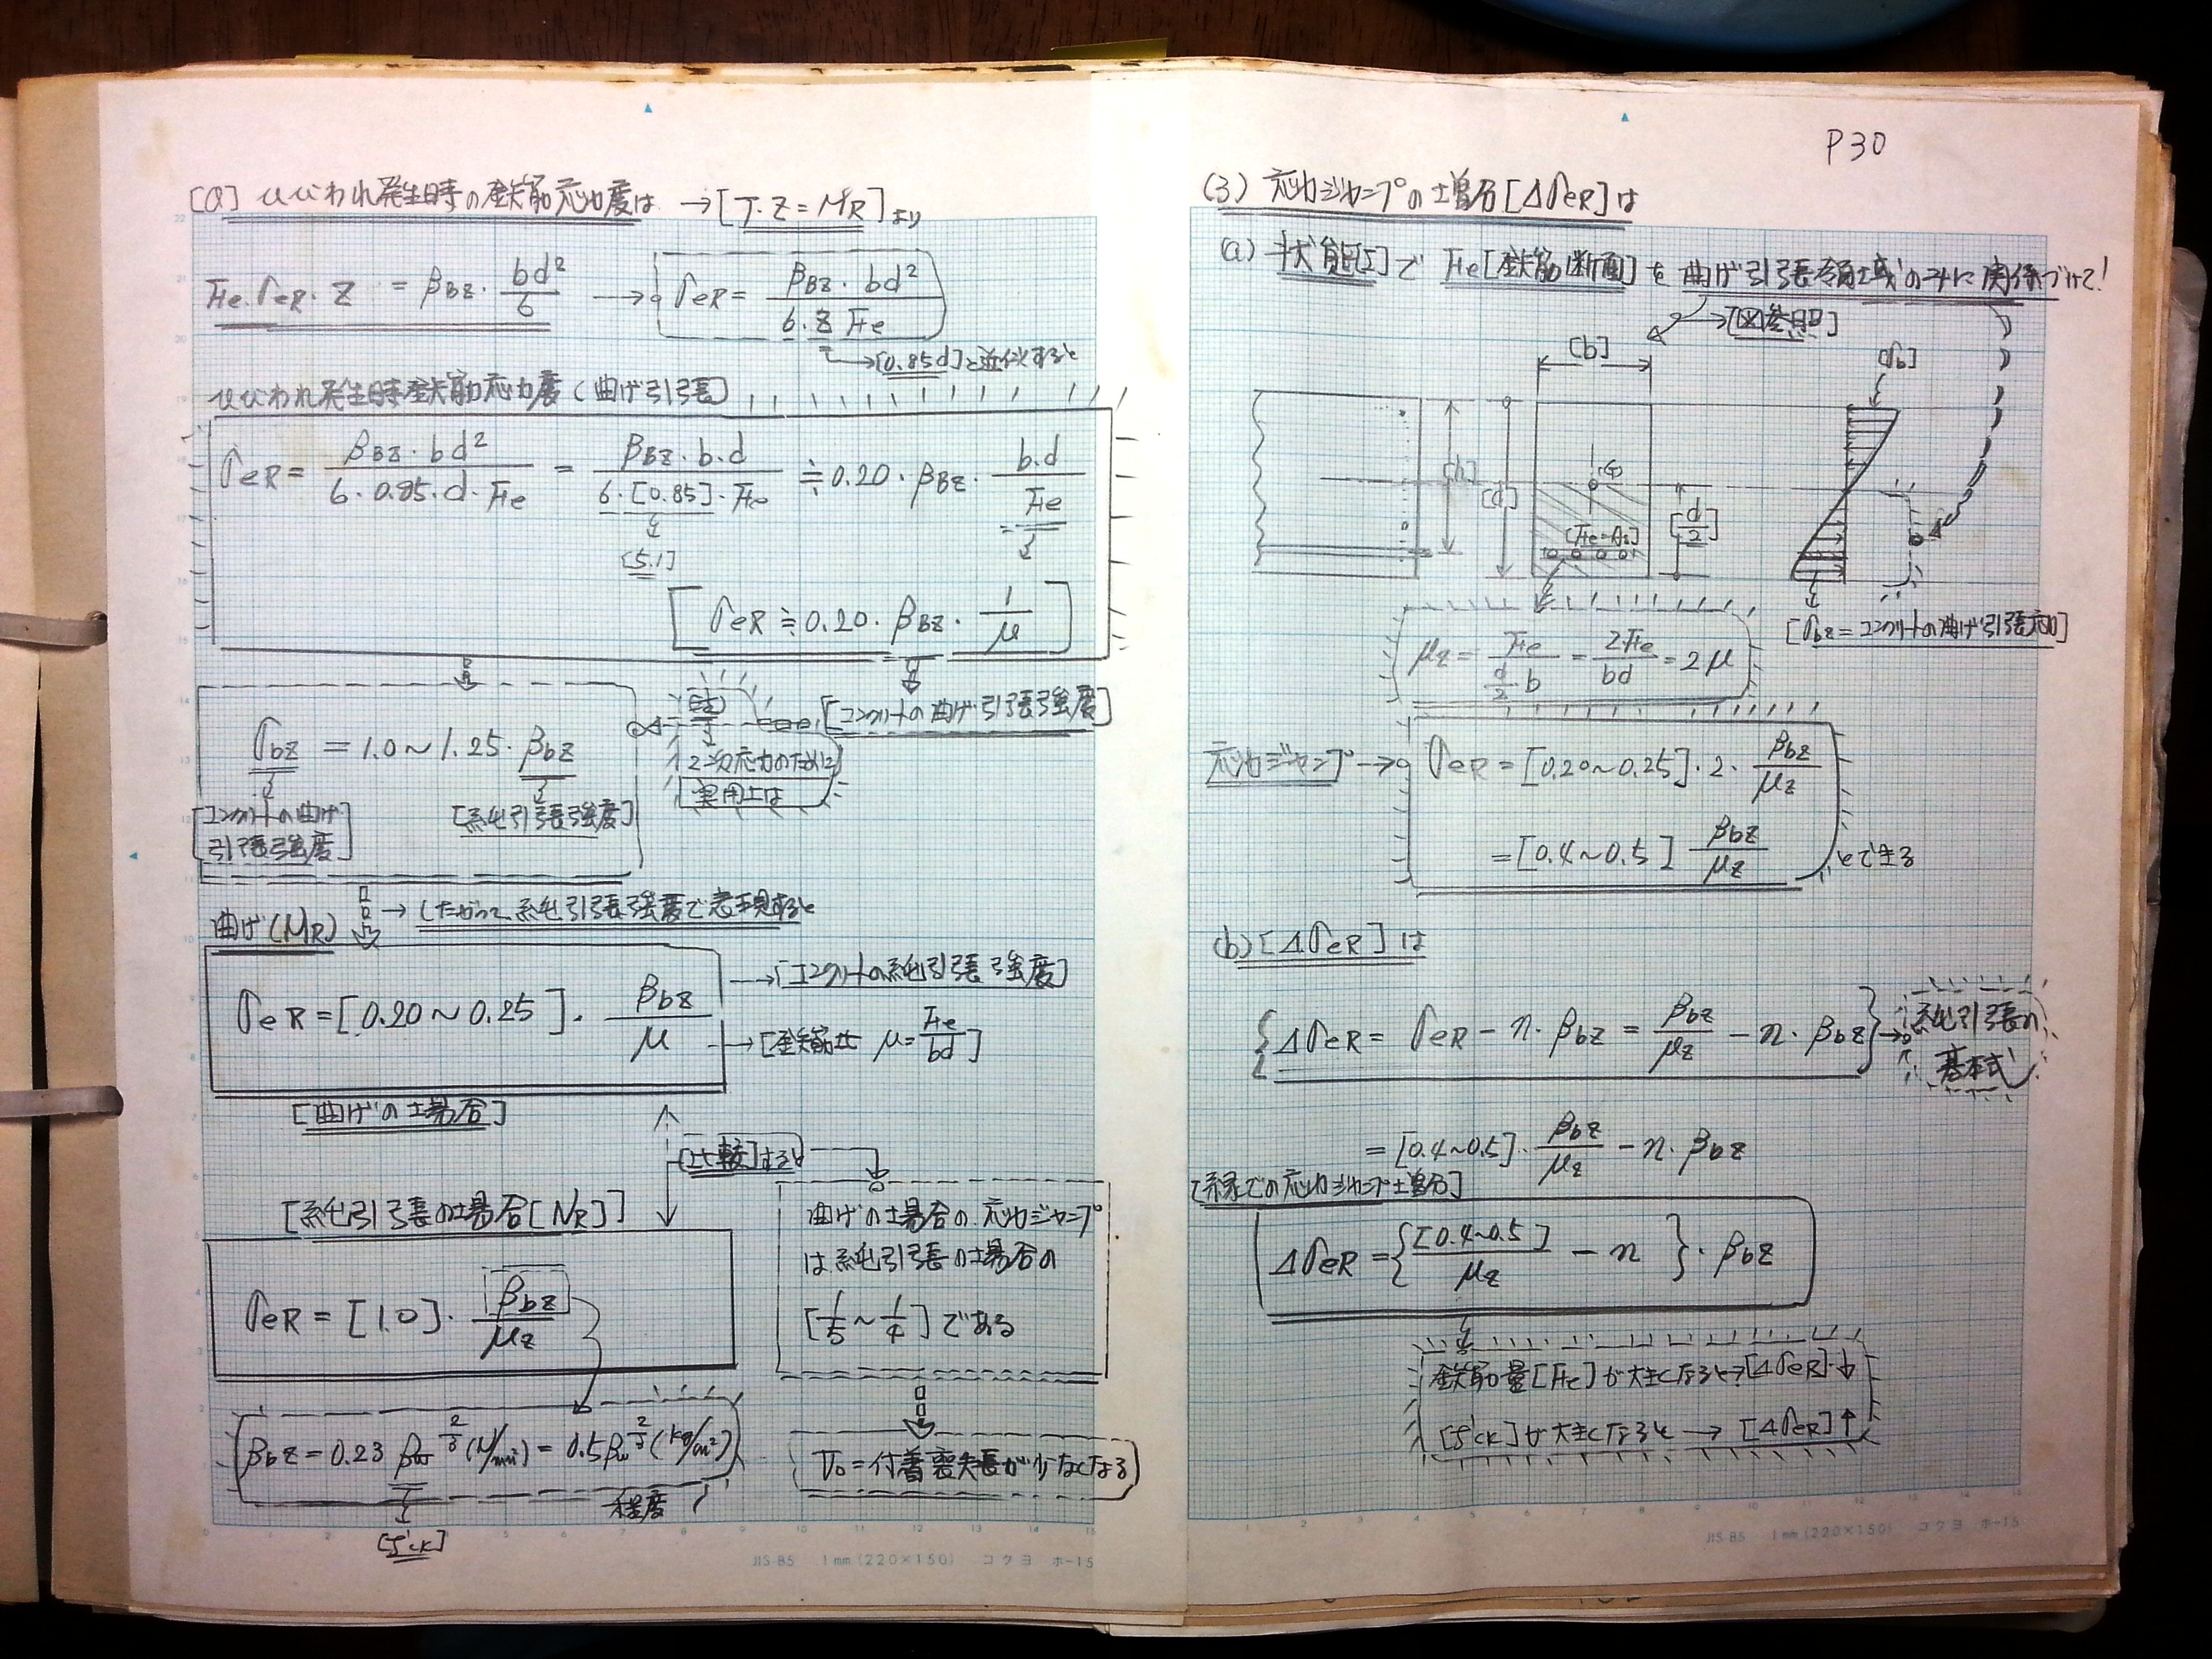 [a] ひびわれ発生時の鉄筋応力度は →[T.Z=MR]より
Fe.σeR.Z = βBZ・bd²/6 → σeR= βBZ・bd²/6.Z Fe
→[0.85d]と近似すると
ひびわれ発生時鉄筋応力度(曲げ引張)
σeR= βBZ・bd²/6・0.85・d・Fe = βBZ・b・d/6・[0.85]・Fe ≒0.20・βBZ・b・d/Fe
[5.1]
[σeR≒0.20・βBZ・1/μ]
[コンクリートの曲げ引張強度]
σbz = 1.0~1.25・βbz
[コンクリートの曲げ引張強度]
[純引張強度]
2次応力のために
実用上は
曲げ(MR) → したがって純引張強度で表現すると
σeR=[0.20~0.25]・βbz/μ
→[コンクリートの純引張強度]
→[鉄筋比 μ=Fe/bd]
[曲げの場合]
[比較]すると
[純引張の場合[NR]]
σeR=[1.0]・βbz/μz
曲げの場合の応力ジャンプ
は純引張の場合の
[1/5~1/4]である
βbz=0.23 βw^2/3(N/mm²)=0.5βw^2/3(kg/cm²)
程度
[f'ck]
V₀=付着喪失長が少なくなる
P30
(3) 応力ジャンプの増分[ΔσeR]は
(a) 状態[I]で Fe[鉄筋断面]を曲げ引張領域のみに関係づけて!
→[図参照]
[b]
[σb]
[h]
[d]
(G)
[d/2]
[Fe=As]
[σbz=コンクリートの曲げ引張応力]
μz= Fe/(d/2)b = 2Fe/bd = 2μ
応力ジャンプ→ σeR=[0.20~0.25]・2・βbz/μz
=[0.4~0.5] βbz/μz
とできる
(b)[ΔσeR]は
{ΔσeR= σeR-n・βbz = βbz/μz - n・βbz}→純引張の
基本式
=[0.4~0.5]・βbz/μz - n・βbz
[縁での応力ジャンプ増分]
ΔσeR={[0.4~0.5]/μz - n}・βbz
鉄筋量[Fe]が大きくなると→[ΔσeR]↓
[f'ck]が大きくなると → [ΔσeR]↑
JIS-B5 1mm(220×150) コクヨ ホ-15
JIS-B5 1mm(220×150) コクヨ ホ-15